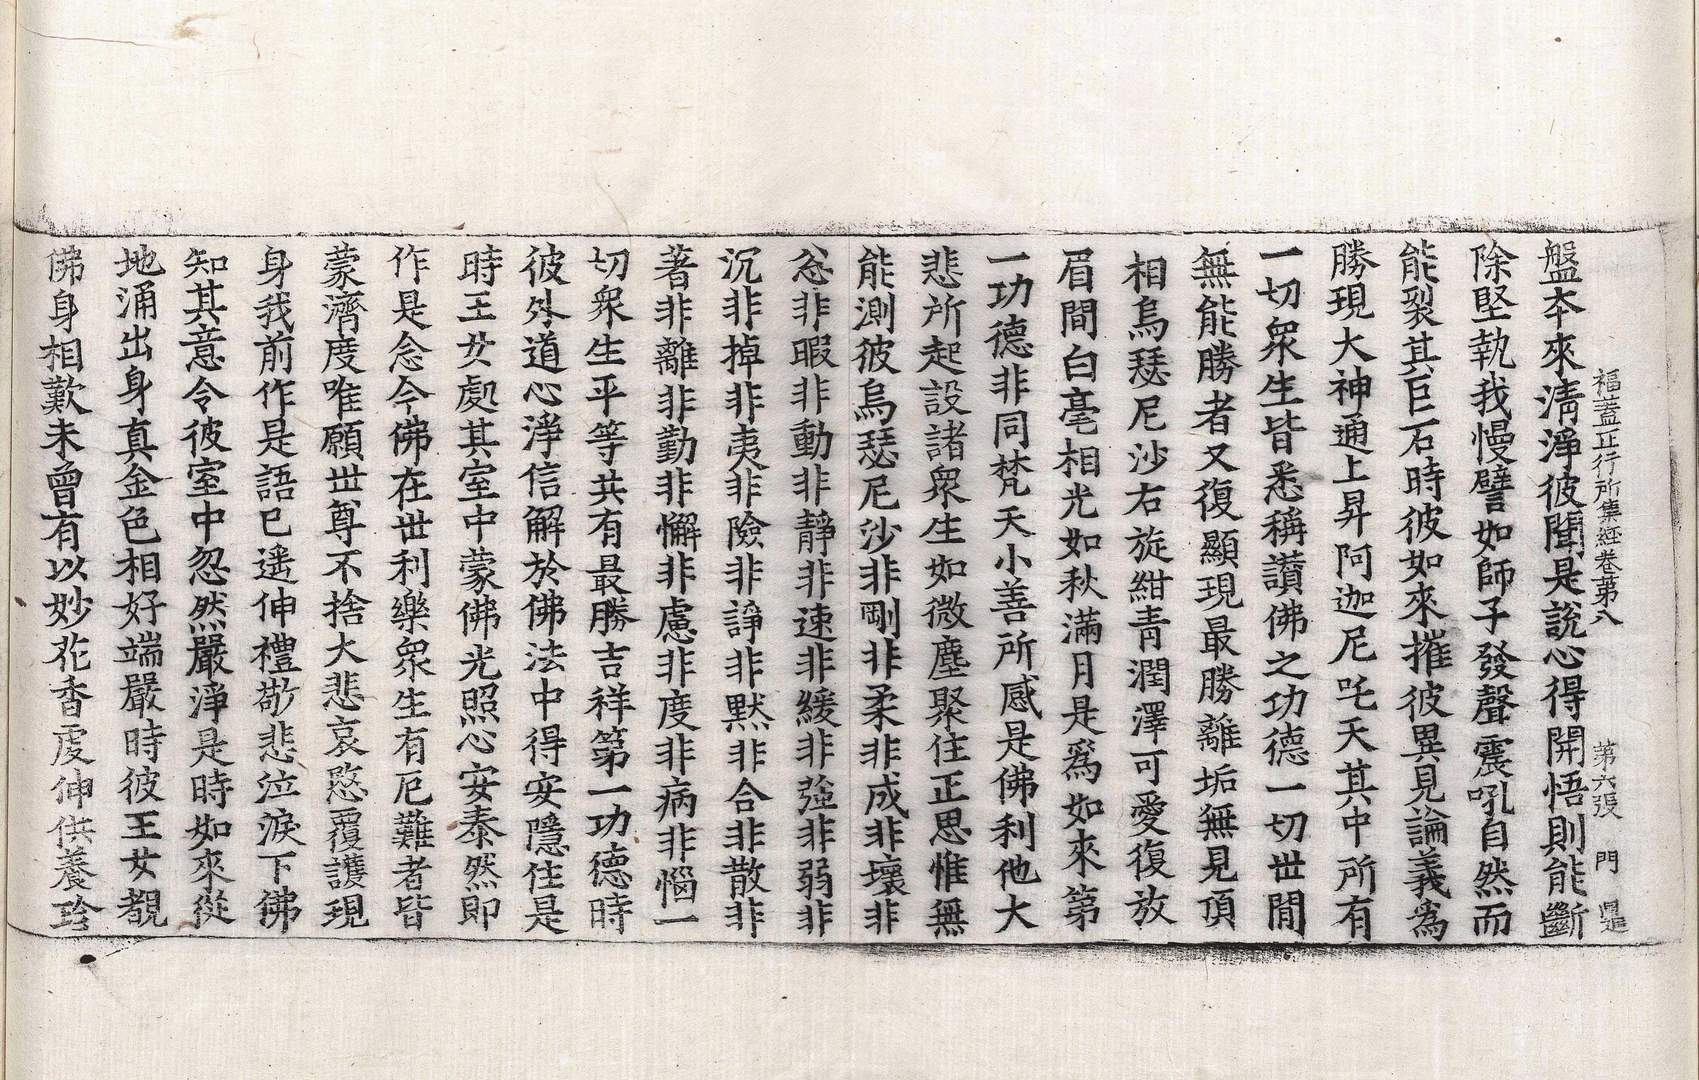 福蓋正行所集經卷苐八 苐六張 門
盤本來清淨彼聞是說心得開悟則能斷
除堅執我慢譬如師子發聲震吼自然而
能裂其巨石時彼如來摧彼異見論義爲
勝現大神通上昇阿迦尼吒天其中所有
一切衆生皆悉稱讚佛之功德一切世間
無能勝者又復顯現最勝離垢無見頂
相烏瑟尼沙右旋紺青潤澤可愛復放
眉間白毫相光如秋滿月是爲如來第
一功德非同梵天小善所感是佛利他大
悲所起設諸衆生如微塵聚住正思惟無
能測彼烏瑟尼沙非剛非柔非成非壞非
忩非暇非動非靜非速非緩非強非弱非
沉非掉非夷非險非諍非默非合非散非
著非離非勤非懈非慮非度非病非惱一
切衆生平等共有最勝吉祥第一功德時
彼外道心淨信解於佛法中得安隱住是
時王女處其室中蒙佛光照心安泰然即
作是念今佛在世利樂衆生有厄難者皆
蒙濟度唯願世尊不捨大悲哀愍覆護現
身我前作是語已遙伸禮敬悲泣淚下佛
知其意令彼室中忽然嚴淨是時如來從
地涌出身真金色相好端嚴時彼王女覩
佛身相歎未曾有以妙花香虔伸供養珎